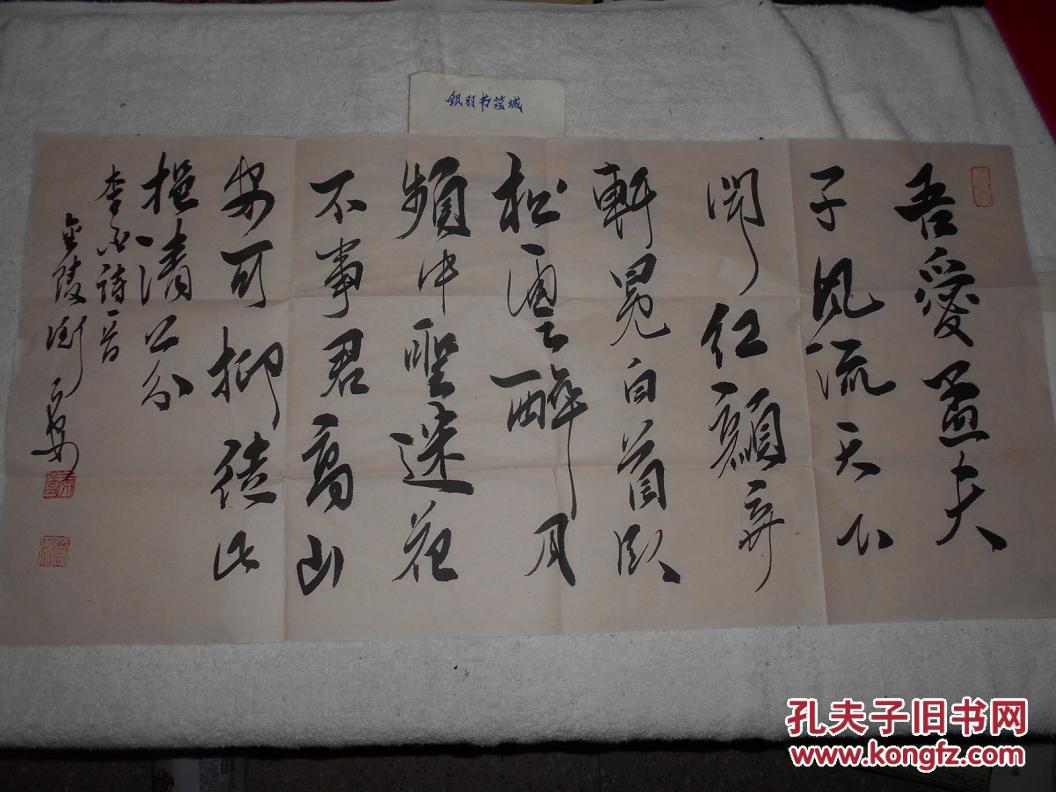 羽书城
吾愛孟夫
子风流天下
闻红顔弃
軒冕白首臥
松雲醉月
頻中聖迷花
不事君高山
安可仰徒此
挹清芬
李白詩一首
金陵
孔夫子旧书网
www.kongfz.com